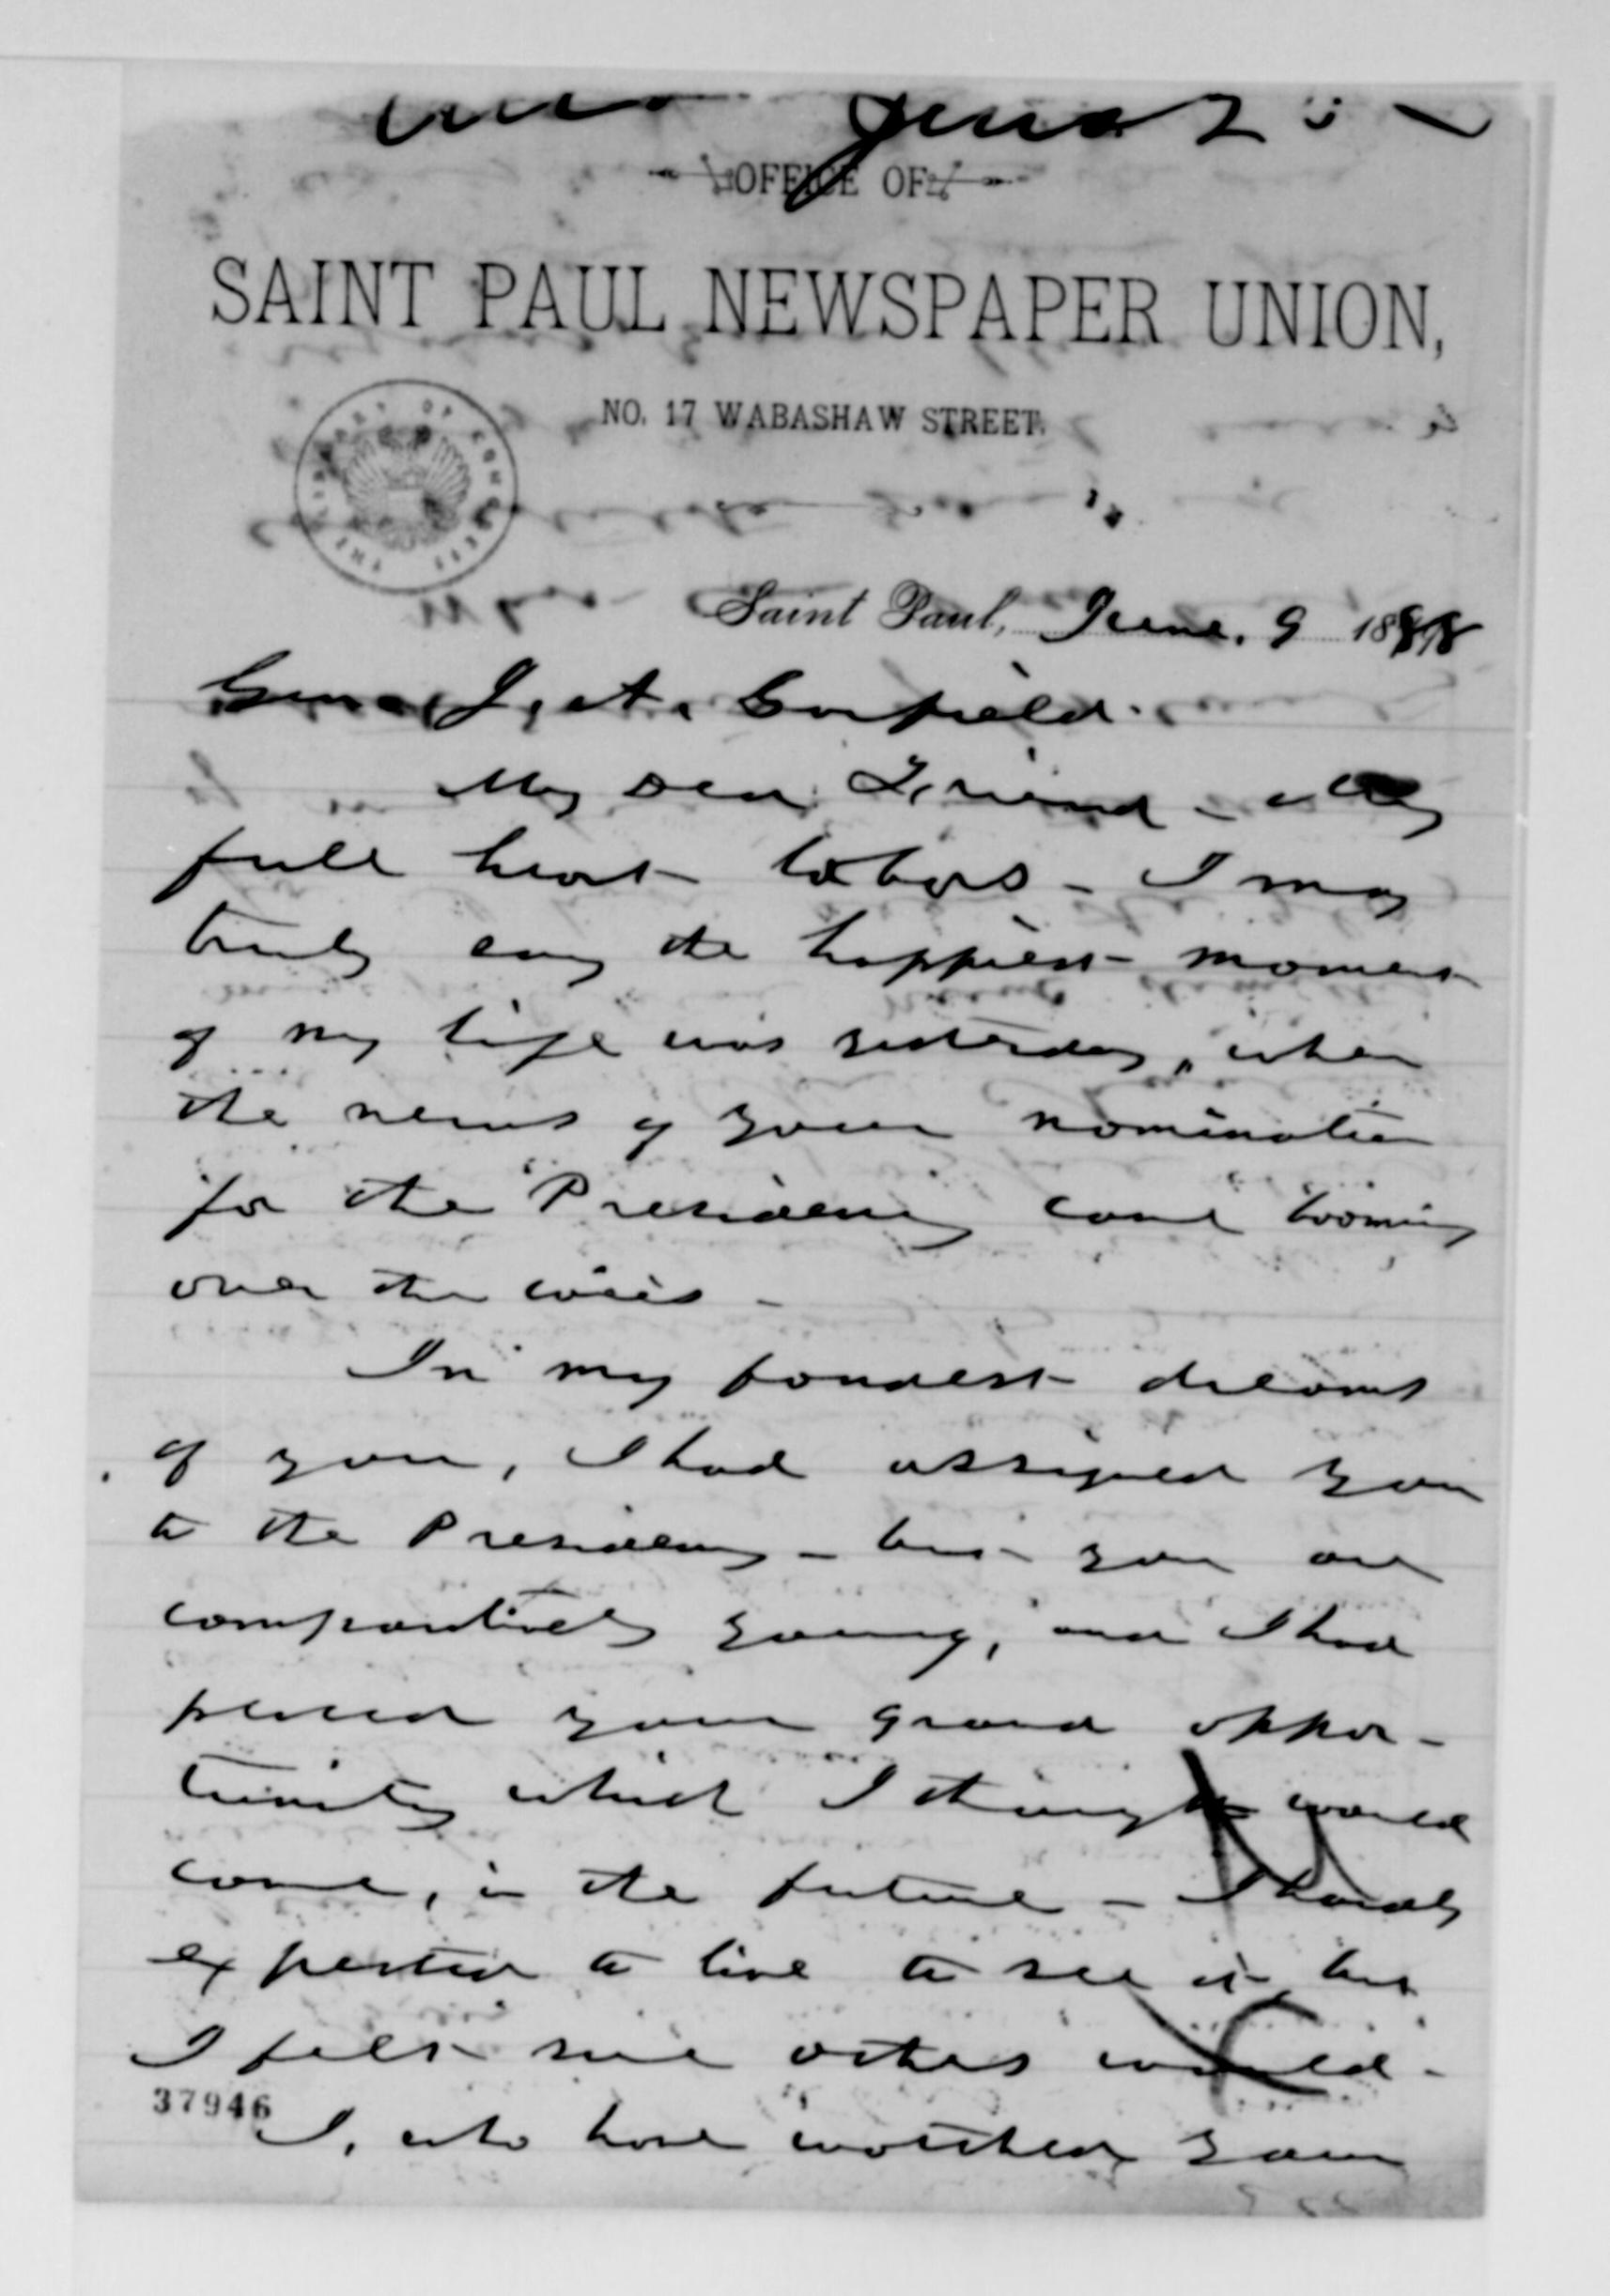 June 2
OFFICE OF
SAINT PAUL NEWSPAPER UNION,
NO. 17 WABASHAW STREET.
THE LIBRARY OF CONGRESS
Saint Paul, June. 9 18
Genl J. A. Garfield.
My Dear Friend - My
full heart - I may
truly say the happiest moment
of my life was yesterday, when
the news of your nomination
for the Presidency came booming
over the wires -
In my fondest dreams
of you, I had assigned you
to the Presidency - but you are
comparatively young, and I had
placed your grand oppor-
tunity which I thought would
come, in the future - I hardly
expected to live to see it, but
I felt sure others would -
37946
I, who have watched your